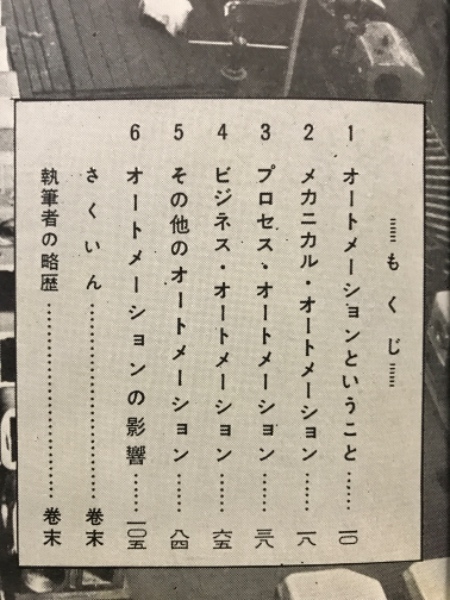 もくじ
1 オートメーションということ……一〇
2 メカニカル・オートメーション……一八
3 プロセス・オートメーション……三八
4 ビジネス・オートメーション……六五
5 その他のオートメーション……八四
6 オートメーションの影響……一〇五
さくいん……………………巻末
執筆者の略歴……………………巻末